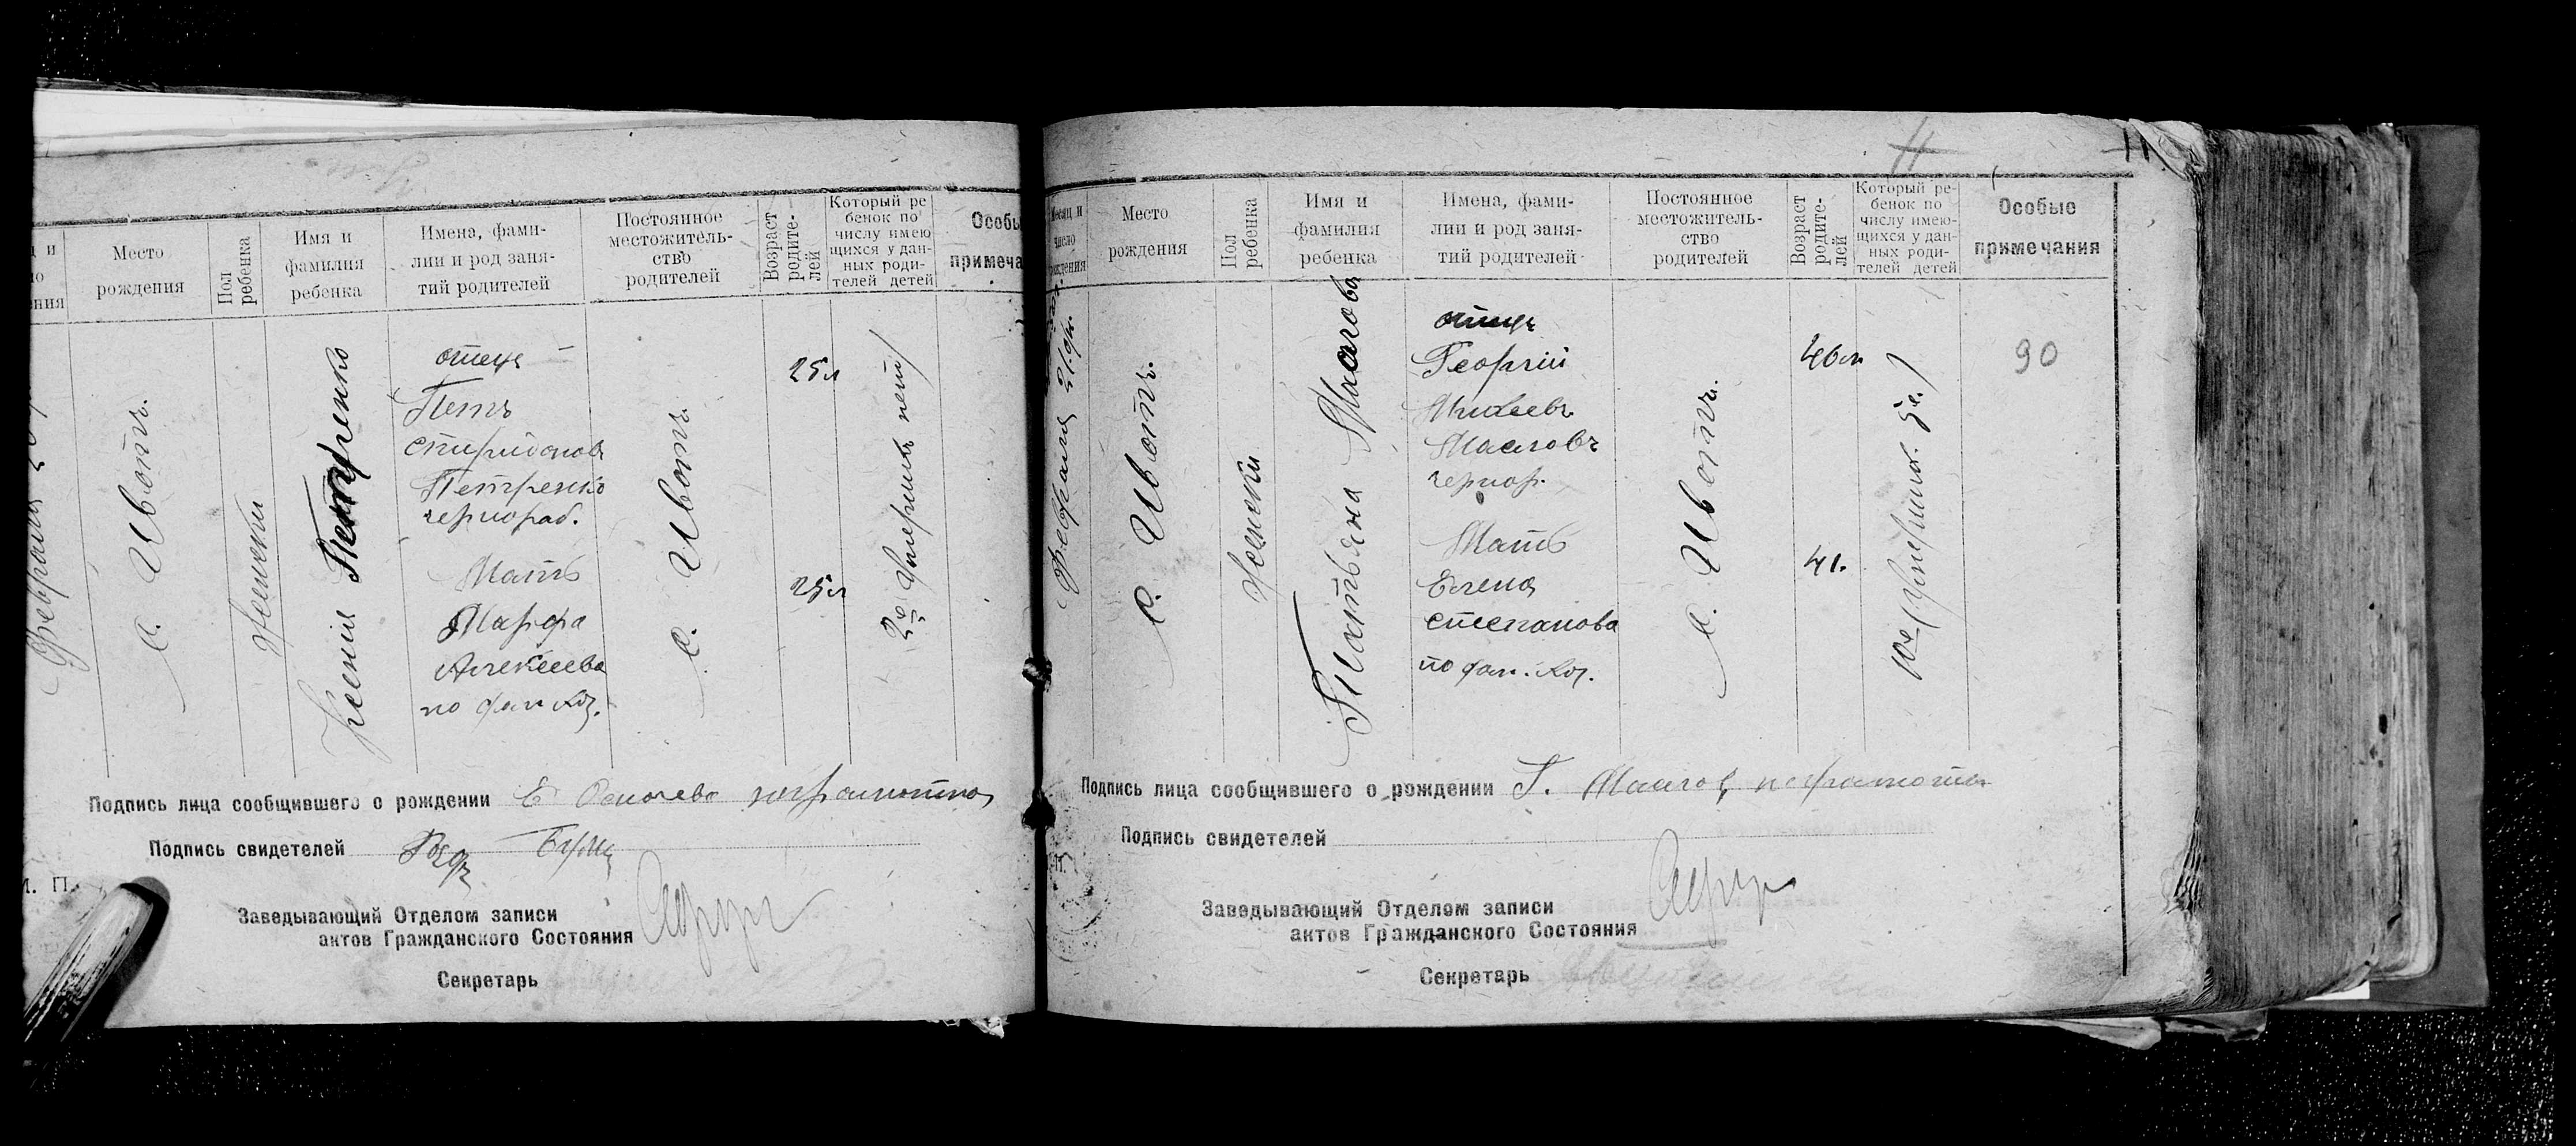 Место
рождения
Пол
ребенка
Имя и
фамилия
ребенка
Имена, фами-
лии и род заня-
тий родителей
Постоянное
местожитель-
ство
родителей
Возраст
родите-
лей
Который ре
бенок по
числу имею
щихся у дан-
ных роди-
телей детей
Особы
примеча
Февраля
с. Ивотъ.
Женски
Ксения Петренко
отецъ
Петъ
Спиридоновъ
Петренко
чернораб.
Мать
Марфа
Алексеева
по фам
с. Ивотъ.
25л
25л
2й Умершихъ нетъ)
Подпись лица сообщившего о рождении Е неграмотна
Подпись свидетелей
М. П.
Заведывающий Отделом записи
актов Гражданского Состояния
Секретарь
Месяц и
число
рождения
Место
рождения
Пол
ребенка
Имя и
фамилия
ребенка
Имена, фами-
лии и род заня-
тий родителей
Постоянное
местожитель-
ство
родителей
Возраст
родите-
лей
Который ре-
бенок по
числу имею-
щихся у дан-
ных роди-
телей детей
Особые
примечания
Февраля 21
с. Ивотъ.
Женски
Татьяна Маслова
отецъ
Георгий
Михеевъ
Масловъ
чернор.
Мать
Елена
Степанова
по фам.
с. Ивотъ.
46л
41.
10й (Умершихъ 5
90
Подпись лица сообщившего о рождении Г. Маслов неграмотен
Подпись свидетелей
Заведывающий Отделом записи
актов Гражданского Состояния
Секретарь